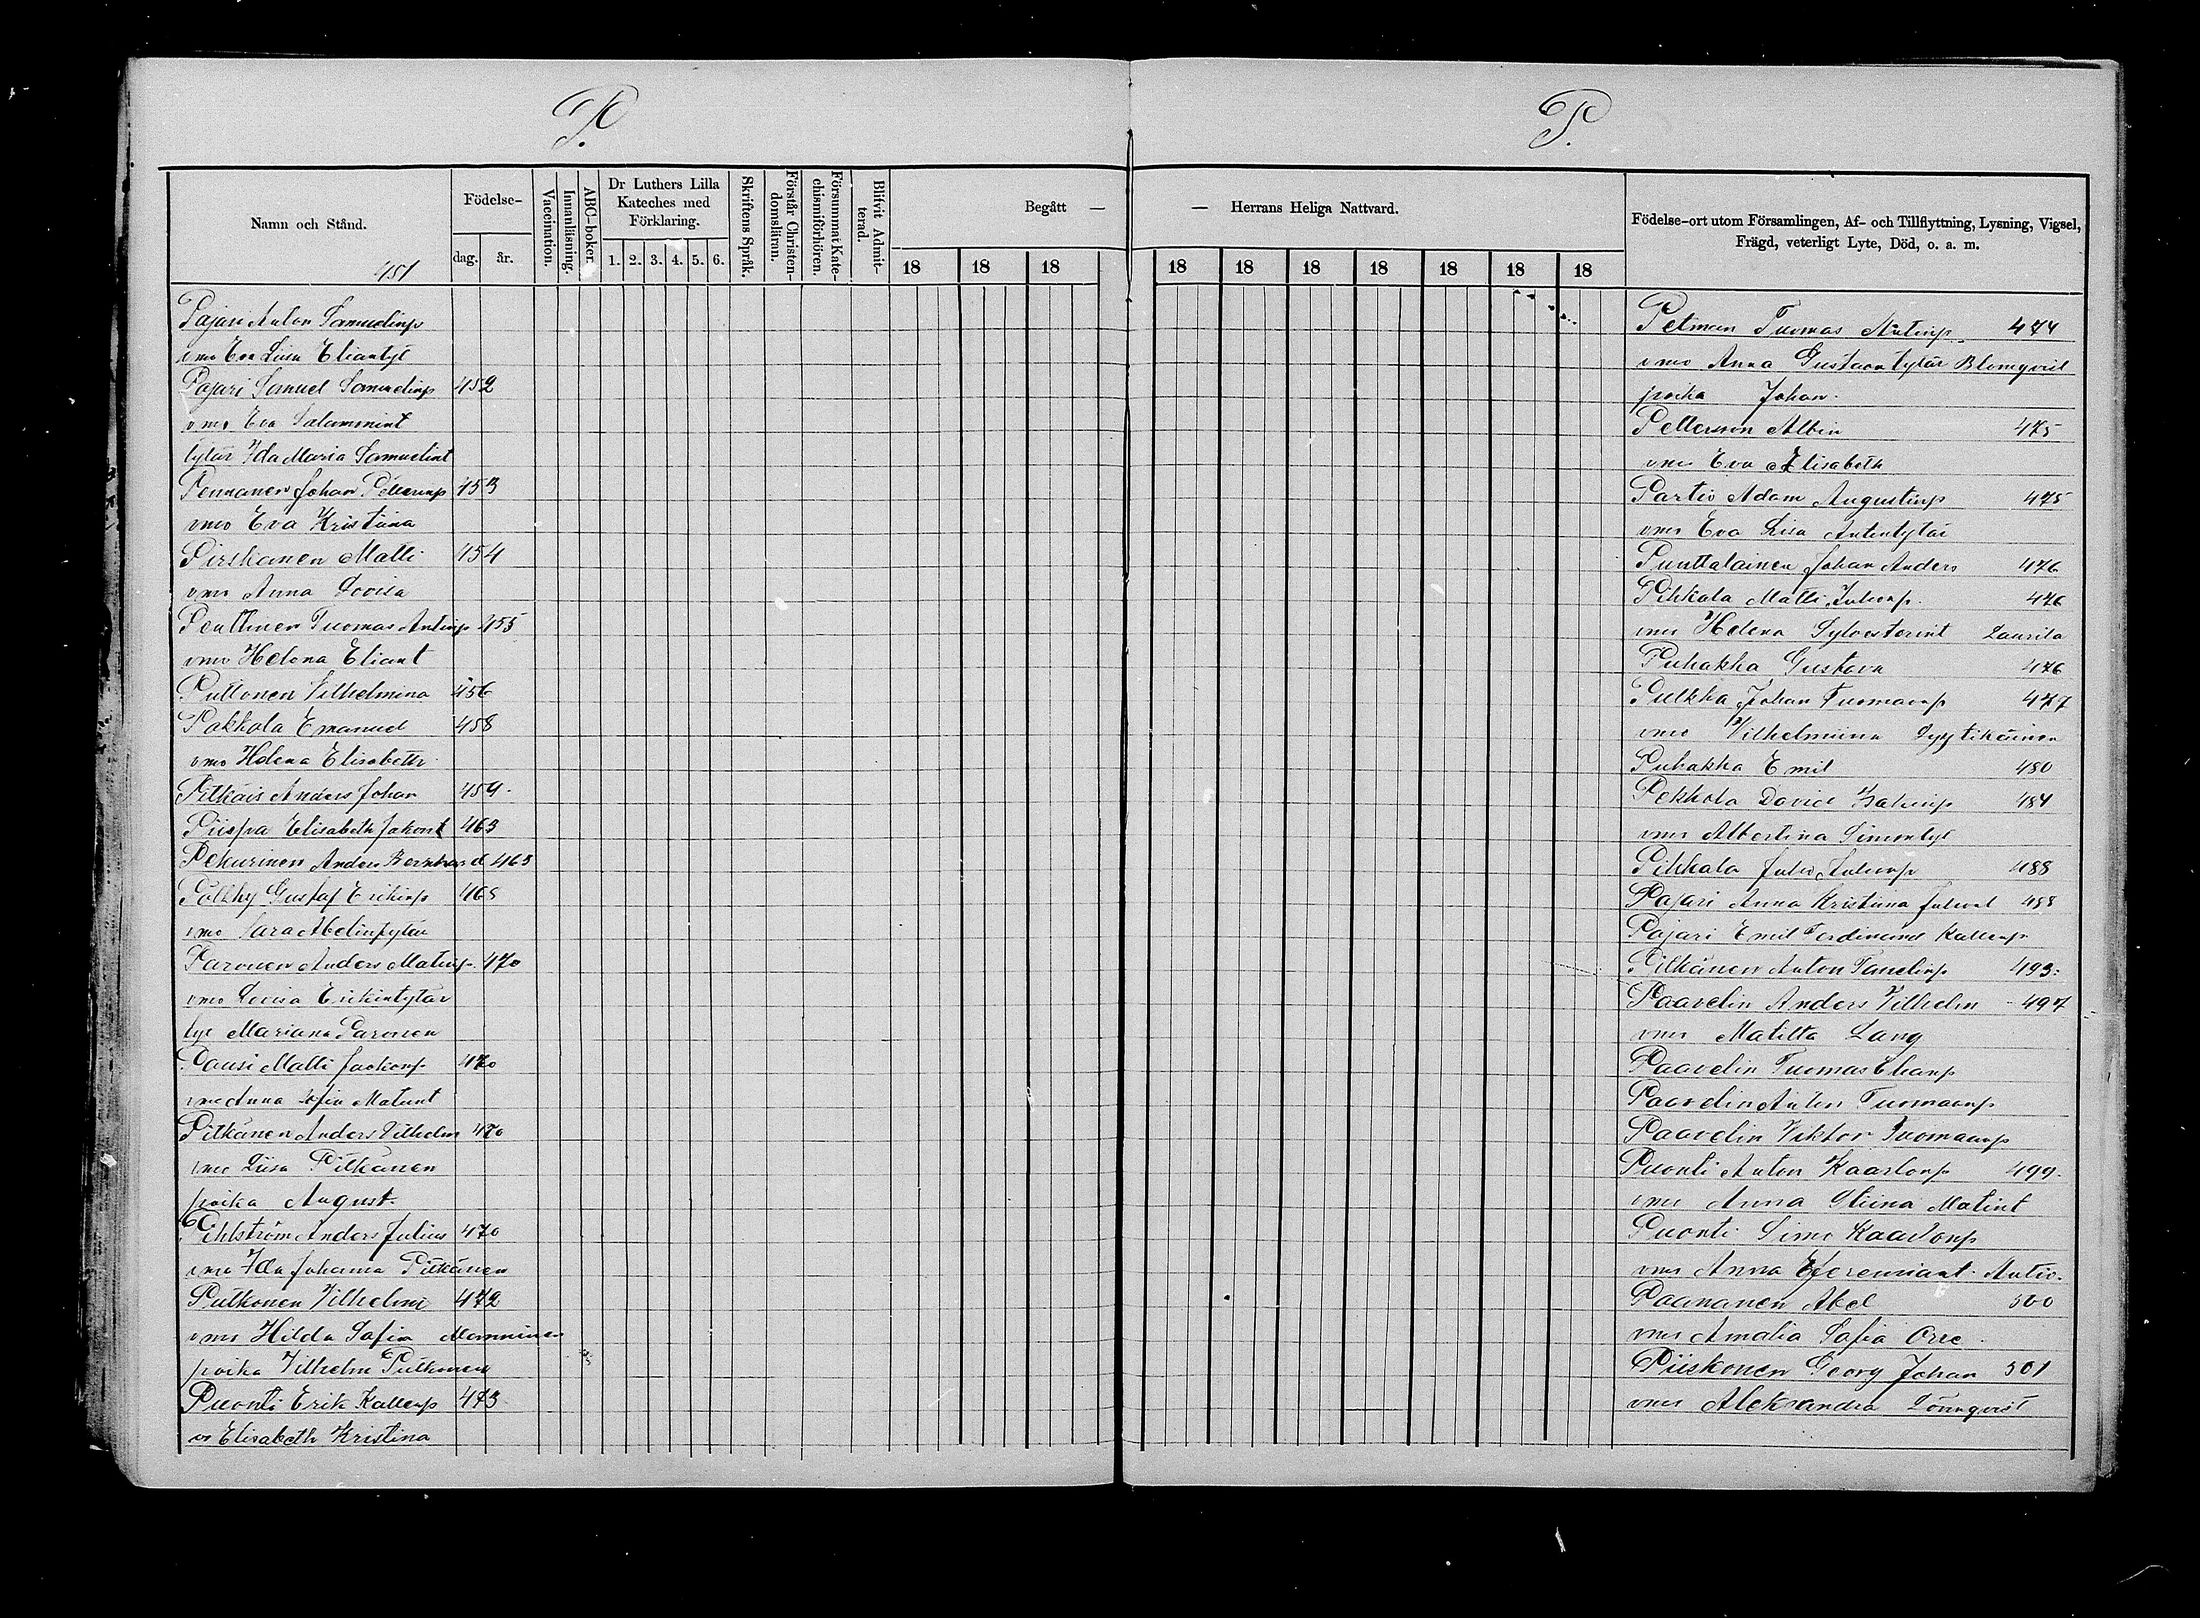 P.
P.
Namn och Stånd.
451
Födelse-
dag.
år.
Vaccination.
Innanläsning.
ABC-boken
Dr Luthers Lilla
Kateches med
Förklaring.
1. 2. 3. 4. 5. 6.
Skriftens Språk.
Förstår Christen-
domsläran.
Försummat Kate-
chismiförhören.
Blifvit Admit-
terad.
Begått —
— Herrans Heliga Nattvard.
18 18 18 18 18 18 18 18 18 18
Födelse-ort utom Församlingen, Af- och Tillflyttning, Lysning, Vigsel,
Frägd, veterligt Lyte, Död, o. a. m.
Pajari Anton Samuelinp
vmo Eva Liisa Eliantyt
Pajari Samuel Samuelinp 452
vmo Eva Salammint
tytär Ida Maria Samuelint
Pennanen Johan Petterinp 453
vmo Eva Kristiina
Pirskanen Matti 454
vmo Anna Lovisa
Penttinen Tuomas Antinp 455
vmo Helena Eliant
Puttonen Vilhelmina 456
Pakkola Emanuel 458
vmo Helena Elisabeth
Pitkäis Anders Johan 459.
Piispa Elisabeth Jakont 463
Pekurinen Anders Bernhard 463
Pölkky Gustaf Erikinp 465
vmo Sara Abelintytär
Paronen Anders Matinp. 470
vmo Lovisa Erikintytär
tyt Mariana Paronen
Pausi Matti Jaakonp 470
vmo Anna Sofia Matint
Pitkänen Anders Vilhelm 470
vmo Liisa Pitkänen
poika August.
Pehlström Anders Julius 470
vmo Ida Johanna Pitkänen
Putkonen Vilhelmi 472
vmo Hilda Sofia Manninen
poika Vilhelm Putkonen
Puonti Erik Kallenp 473
vo Elisabeth Kristina
Petman Tuomas Antinp 474
vmo Anna Gustaantytär Blomqvist
poika Johan.
Petterson Albin 475
vmo Eva Elisabeth
Partio Adam Augustinp 475
vmo Eva Liisa Antintytär
Punttalainen Johan Anders 476
Pihkala Matti Juhonp. 476
vmo Helena Sylvesterint Laurila
Puhakka Gustava 476
Pulkka Johan Tuomaanp 477
vmo Vilhelmiina Lyytikäinen
Puhakka Emil 480
Pekkola David Isakinp 484
vmo Albertina Simontyt
Pihkala Juho Juhonp 488
Pajari Anna Kristiina Juhont 488
Pajari Emil Ferdinand Kallenp
Pitkänen Anton Tanelinp 493.
Paavelin Anders Vilhelm 497
vmo Matilta Lang
Paavelin Tuomas Elianp
Paavelin Anton Tuomaanp
Paavelin Viktor Tuomaanp
Puonti Anton Kaarlonp 499.
vmo Anna Stiina Matint
Puonti Simo Kaarlonp
vmo Anna Efereniant. Autio.
Paananen Abel 500
vmo Amalia Sofia Orre
Piiskonen Georg Johan 501
vmo Aleksandra Lönnqvist